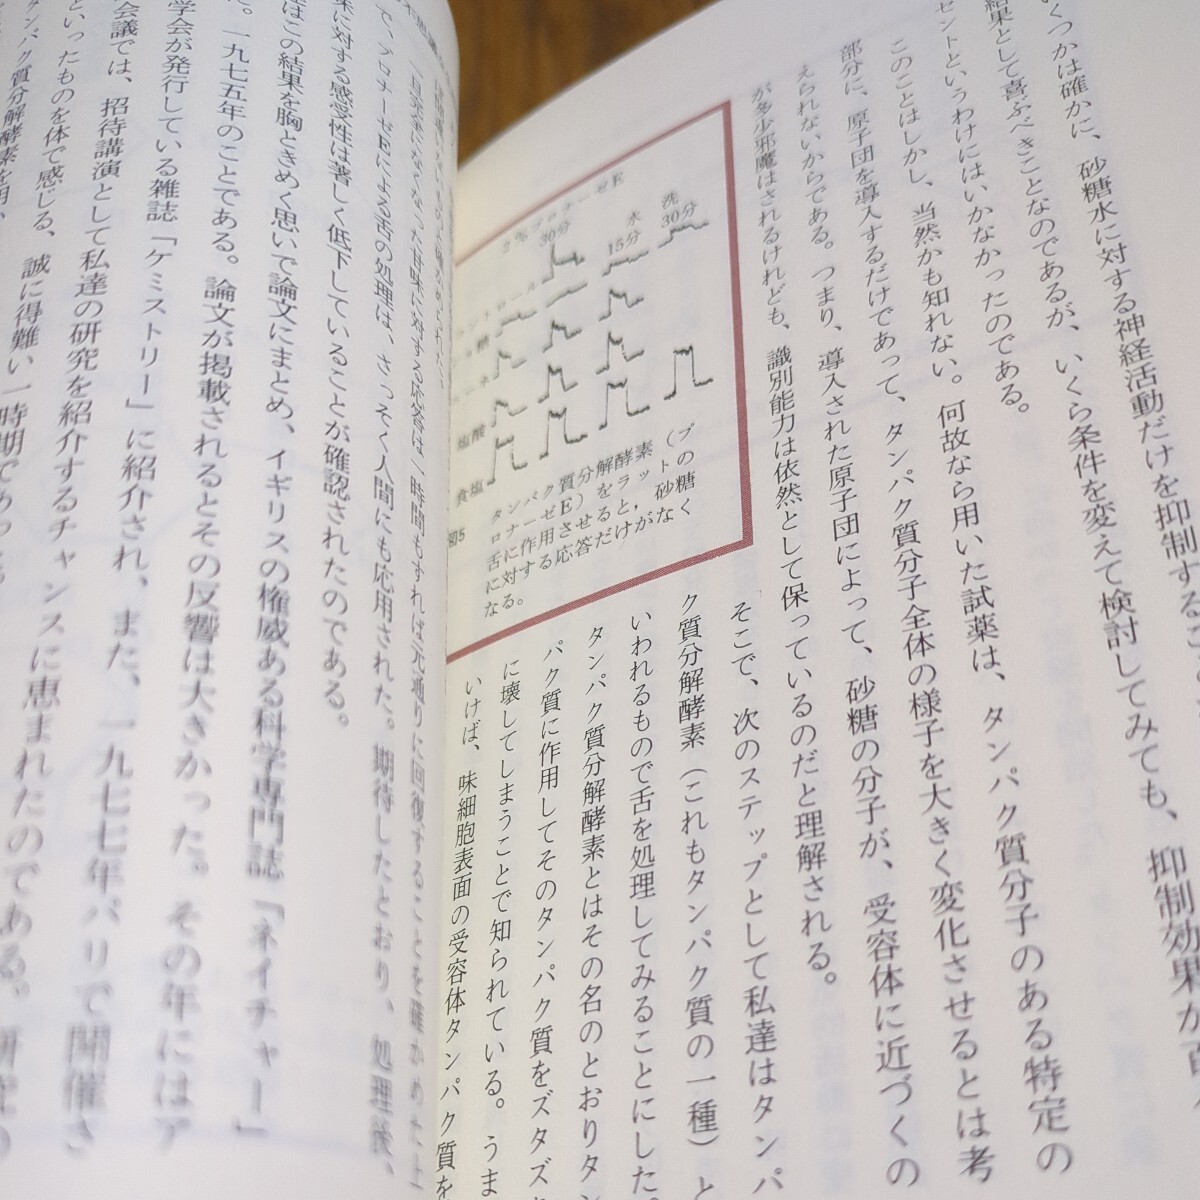 くつかは確かに、砂糖水に対する神経活動だけを抑制する
結果として喜ぶべきことなのであるが、いくら条件を変えて検討してみても、抑制効果が
セントというわけにはいかなかったのである。
このことはしかし、当然かも知れない。何故なら用いた試薬は、タンパク質分子のある特定の
部分に、原子団を導入するだけであって、タンパク質分子全体の様子を大きく変化させるとは考
えられないからである。つまり、導入された原子団によって、砂糖の分子が、受容体に近づくの
が多少邪魔はされるけれども、識別能力は依然として保っているのだと理解される。
そこで、次のステップとして私達はタンパ
ク質分解酵素（これもタンパク質の一種）と
いわれるもので舌を処理してみることにした。
タンパク質分解酵素とはその名のとおりタン
パク質に作用してそのタンパク質をズタズ
に壊してしまうことで知られている。うま
いけば、味細胞表面の受容体タンパク質を
2％プロナーゼE
30分
水
15分
洗
30分
塩酸
食塩
図5
タンパク質分解酵素（プ
ロナーゼE）をラットの
舌に作用させると，砂糖
に対する応答だけがなく
なる。
一旦完全になくなった甘味に対する応答は一時間もすれば元通りに回復することを確かめた上
で、プロナーゼEによる舌の処理は、さっそく人間にも応用された。期待したとおり、処理後、
味に対する感受性は著しく低下していることが確認されたのである。
はこの結果を胸ときめく思いで論文にまとめ、イギリスの権威ある科学専門誌「ネイチャー」
た。一九七五年のことである。論文が掲載されるとその反響は大きかった。その年にはア
学会が発行している雑誌「ケミストリー」に紹介され、また、一九七七年パリで開催さ
会議では、招待講演として私達の研究を紹介するチャンスに恵まれたのである。研究の
といったものを体で感じる、誠に得難い一時期であった
ンパク質分解酵素を用い